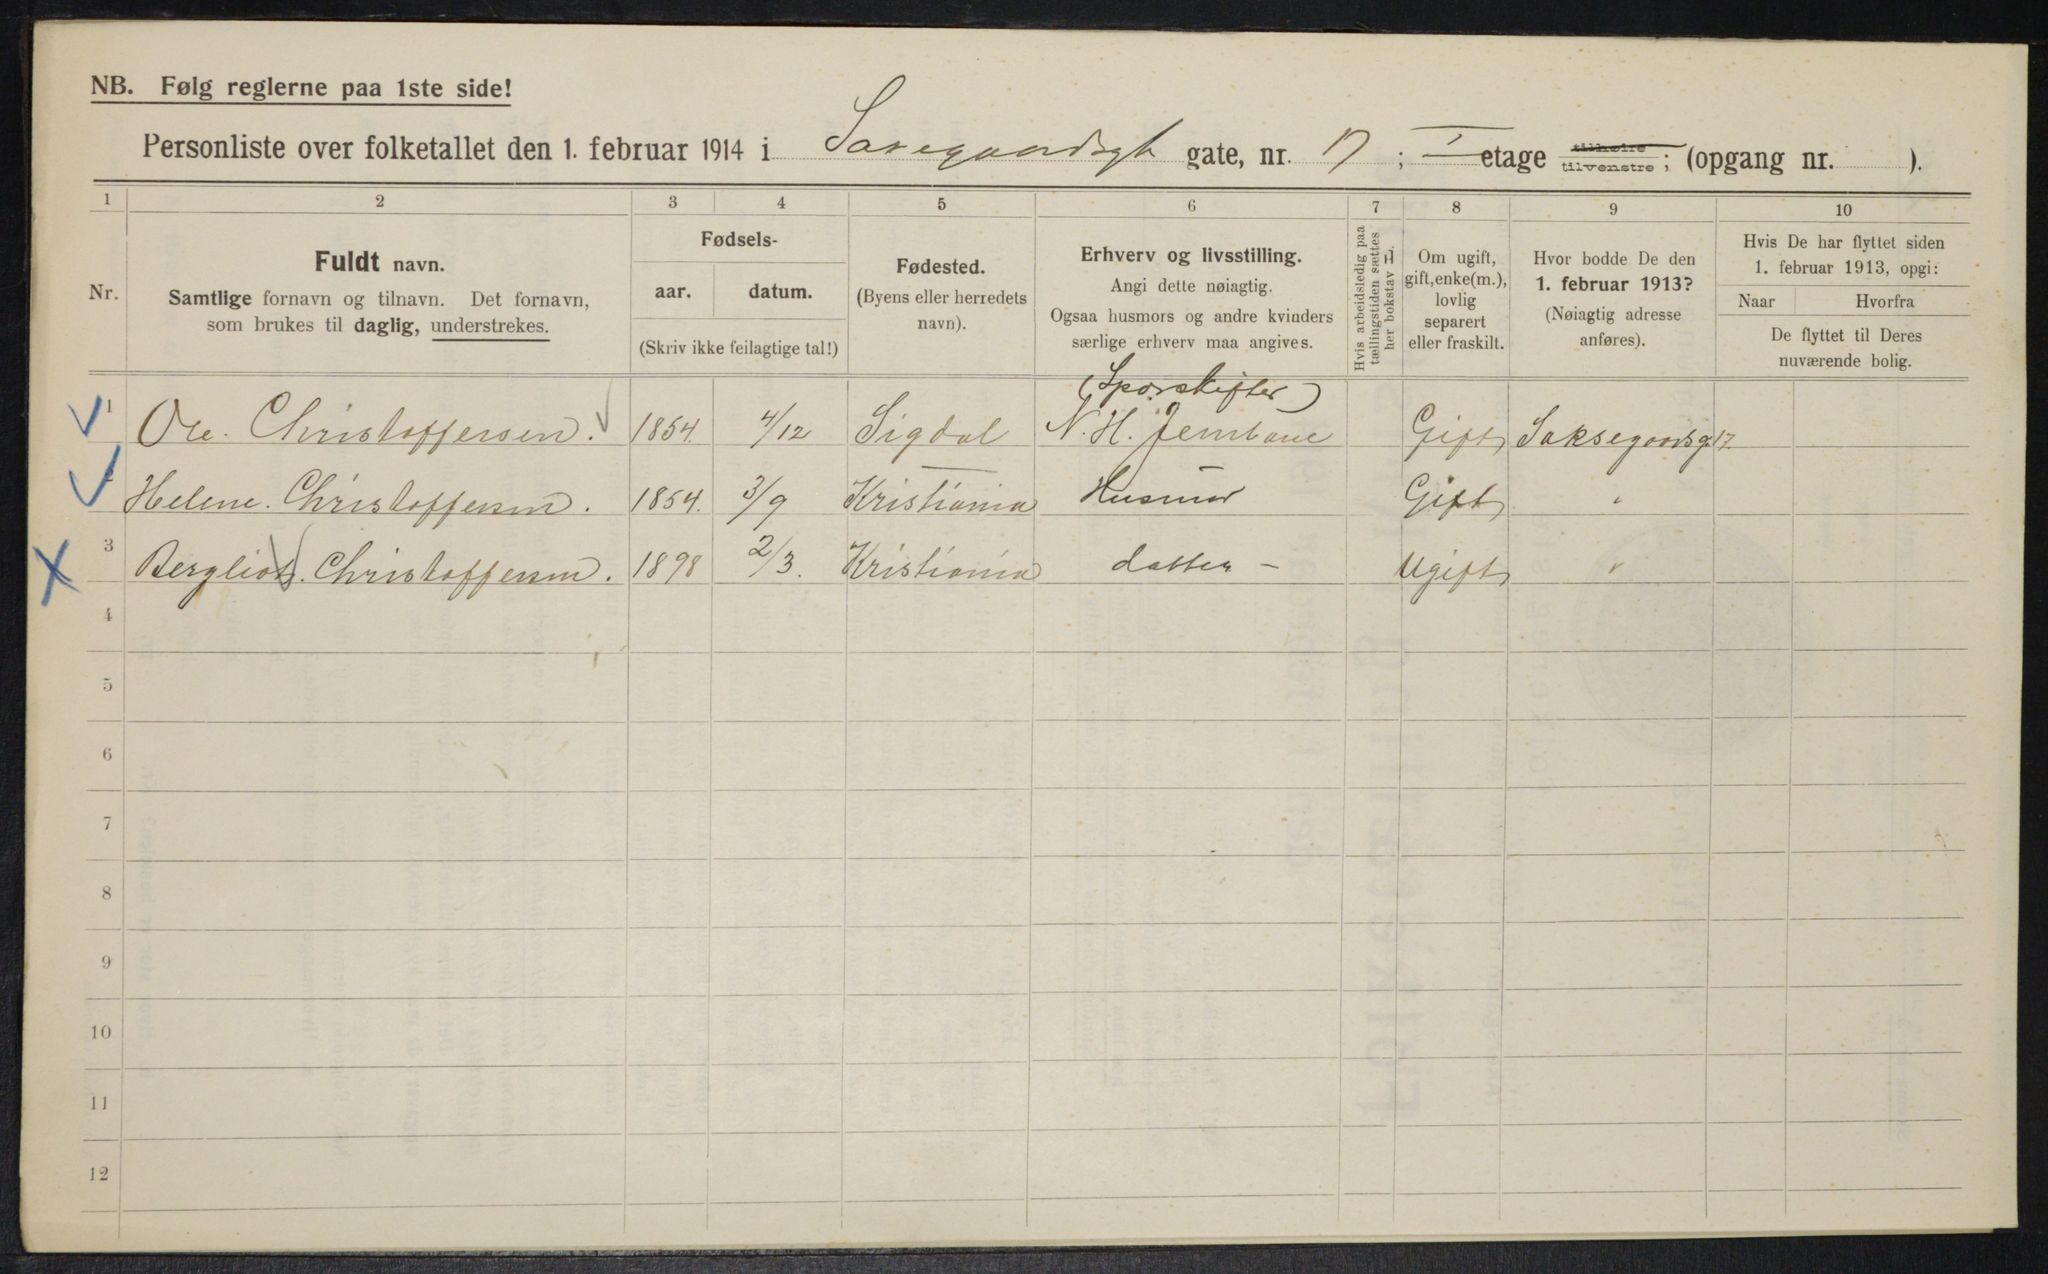 NB. Følg reglerne paa 1ste side!
Personliste over folketallet den 1. februar 1914 i Saxegaardsgt gate, nr. 17 ; I etage tilhøire tilvenstre; (opgang nr. ).
1 2 3 4 5 6 7 8 9 10
Nr.
Fuldt navn.
Samtlige fornavn og tilnavn. Det fornavn,
som brukes til daglig, understrekes.
Fødsels-
aar. datum.
(Skriv ikke feilagtige tal!)
Fødested.
(Byens eller herredets
navn).
Erhverv og livsstilling.
Angi dette nøiagtig.
Ogsaa husmors og andre kvinders
særlige erhverv maa angives.
Hvis arbeidsledig paa
tællingstiden sættes
her bokstav L.
Om ugift,
gift, enke(m.),
lovlig
separert
eller fraskilt.
Hvor bodde De den
1. februar 1913?
(Nøiagtig adresse
anføres).
Hvis De har flyttet siden
1. februar 1913, opgi:
Naar Hvorfra
De flyttet til Deres
nuværende bolig.
(Sporskifter)
1 Ole. Christoffersen. 1854. 4/12 Sigdal N. H. Jernbane Gift Saksegaardsg. 17
2 Helene. Christoffersen. 1854. 3/9 Kristiania Husmor Gift "
3 Bergliot. Christoffersen. 1898 2/3. Kristiania datter – Ugift "
4
5
6
7
8
9
10
11
12